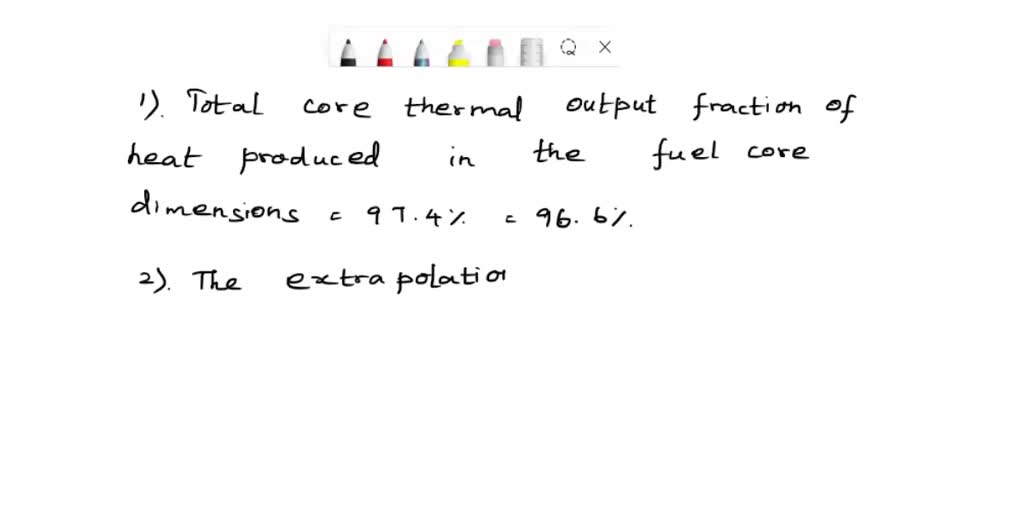 1). Total core thermal output fraction of
heat produced in the fuel core
dimensions = 97.4% = 96.6%.
2). The extrapolation